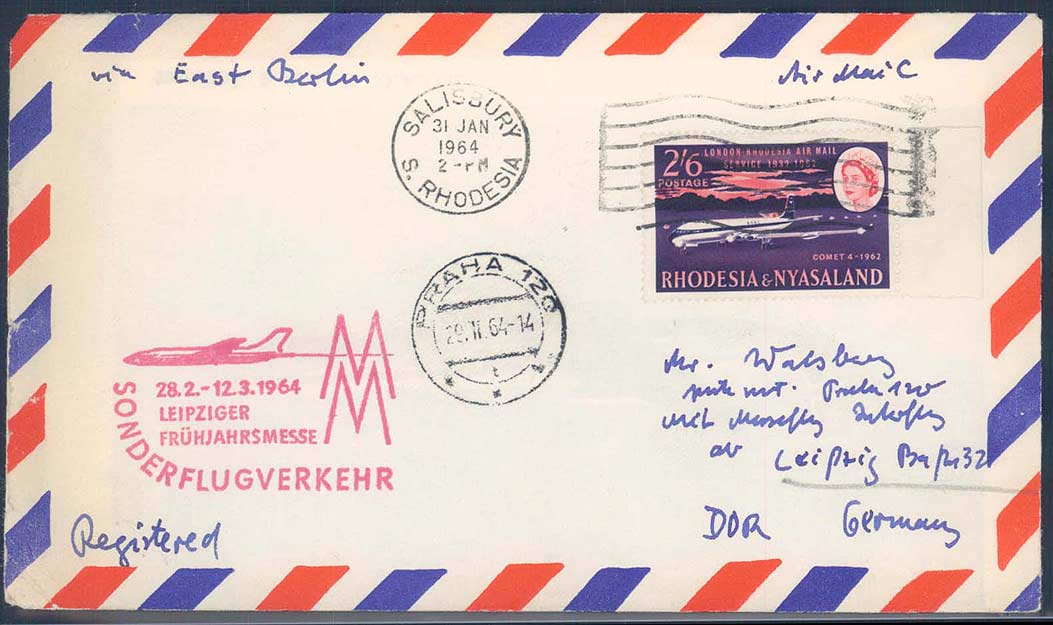 via East Berlin
Air Mail
SALISBURY
31 JAN
1964
2-PM
S. RHODESIA
2/6
POSTAGE
LONDON-RHODESIA AIR MAIL
SERVICE 1932-1962
COMET 4-1962
RHODESIA & NYASALAND
PRAHA 120
29.II.64-14
t
28.2.-12.3.1964
LEIPZIGER
FRÜHJAHRSMESSE
MM
SONDERFLUGVERKEHR
Mr.
120
mit
ab Leipzig
DDR Germany
Registered